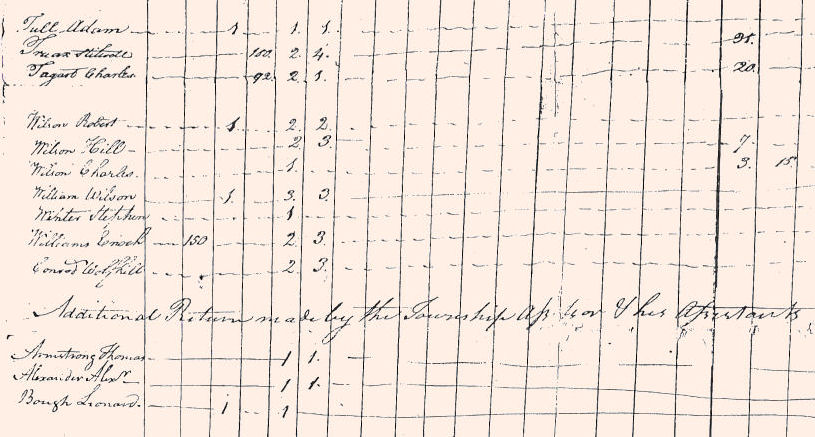 Tull Adam 1 1. 1.
Truax Stilwell 150. 2. 4. 31.
Tagart Charles 92. 2. 1. 20.
Wilson Robert 1. 2. 2.
Wilson Hill 2 3. 7.
Wilson Charles. 1. 3. 15.
William Wilson 1. 3. 3.
Winter Stephen 1
Williams Enoch 150 2. 3.
Conrod 2. 3.
Additional Return made by the Township Assessor & his Assistants
Armstrong Thomas 1 1.
Alexander Alexr. 1 1.
Bough Leonard. 1 1